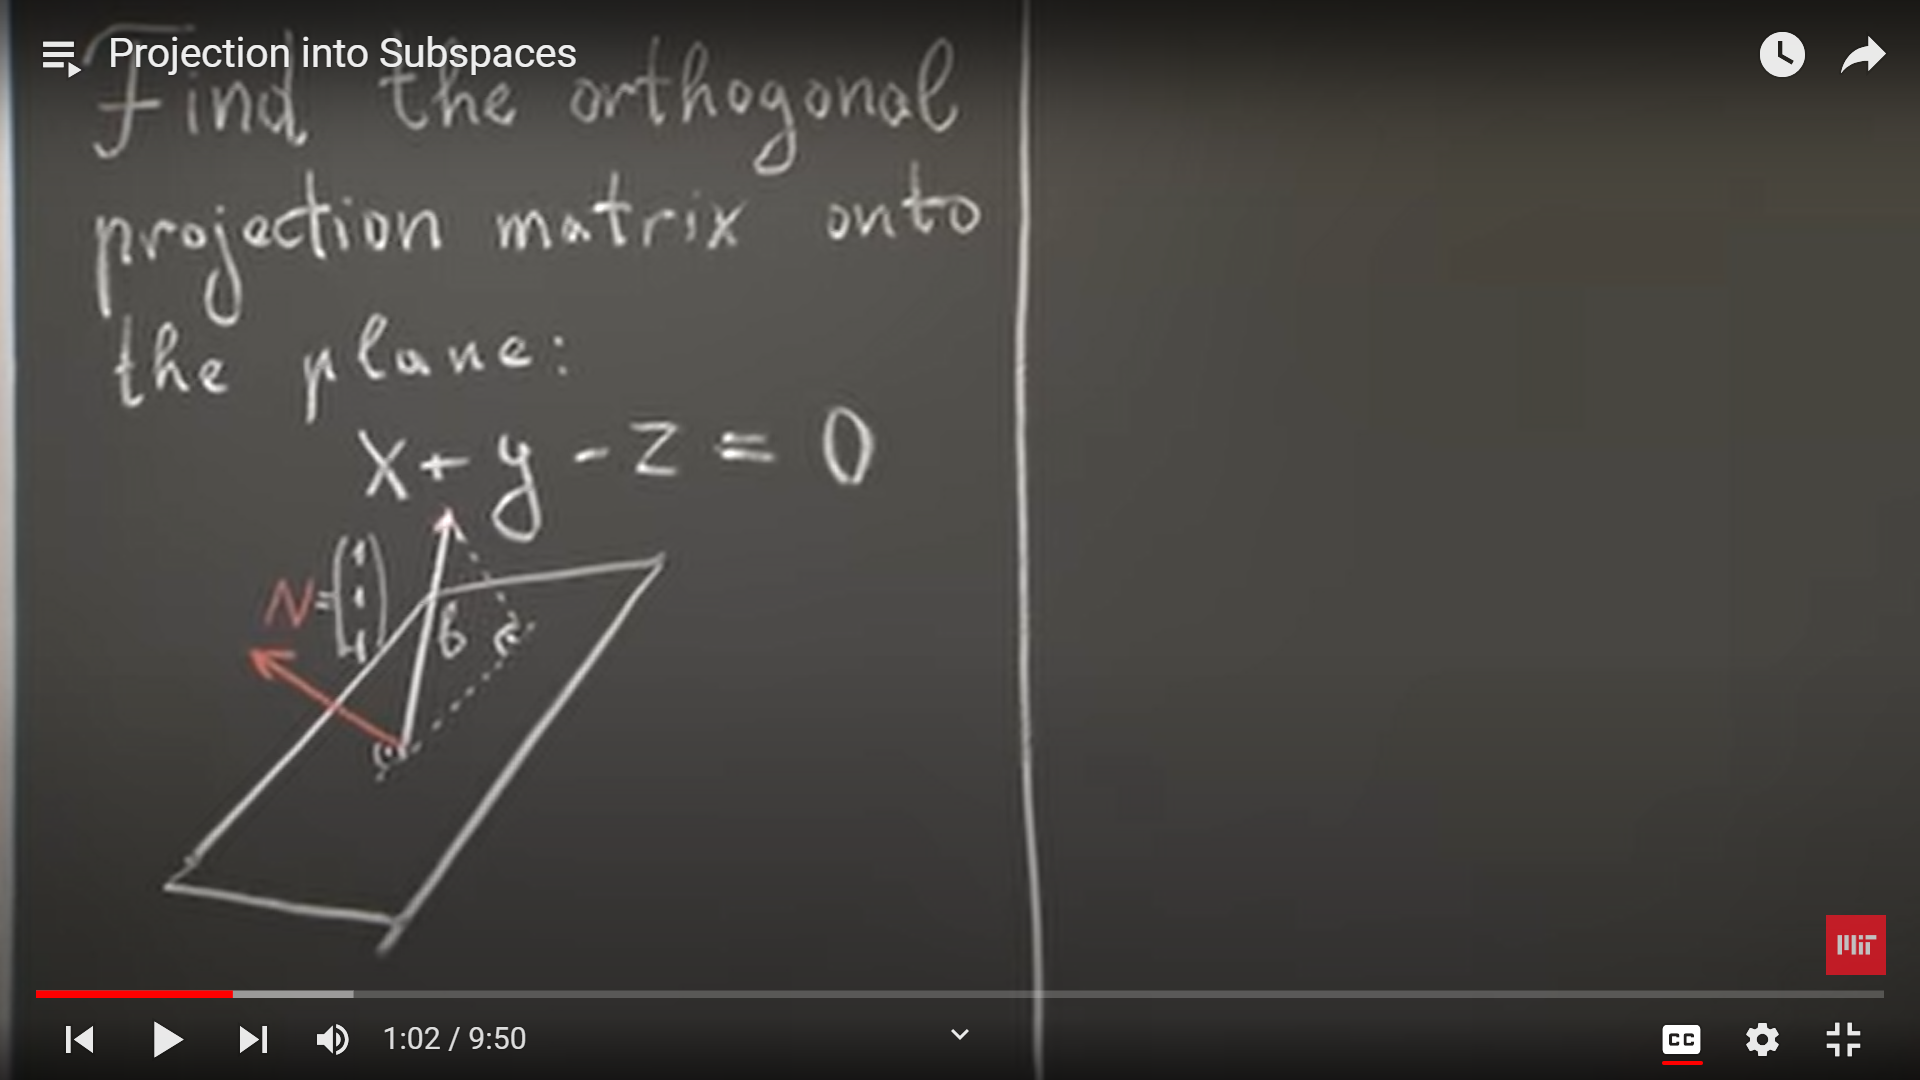 Projection into Subspaces
Find the orthogonal
projection matrix onto
the plane:
x + y - z = 0
N=
b
1:02 / 9:50
CC
MIT